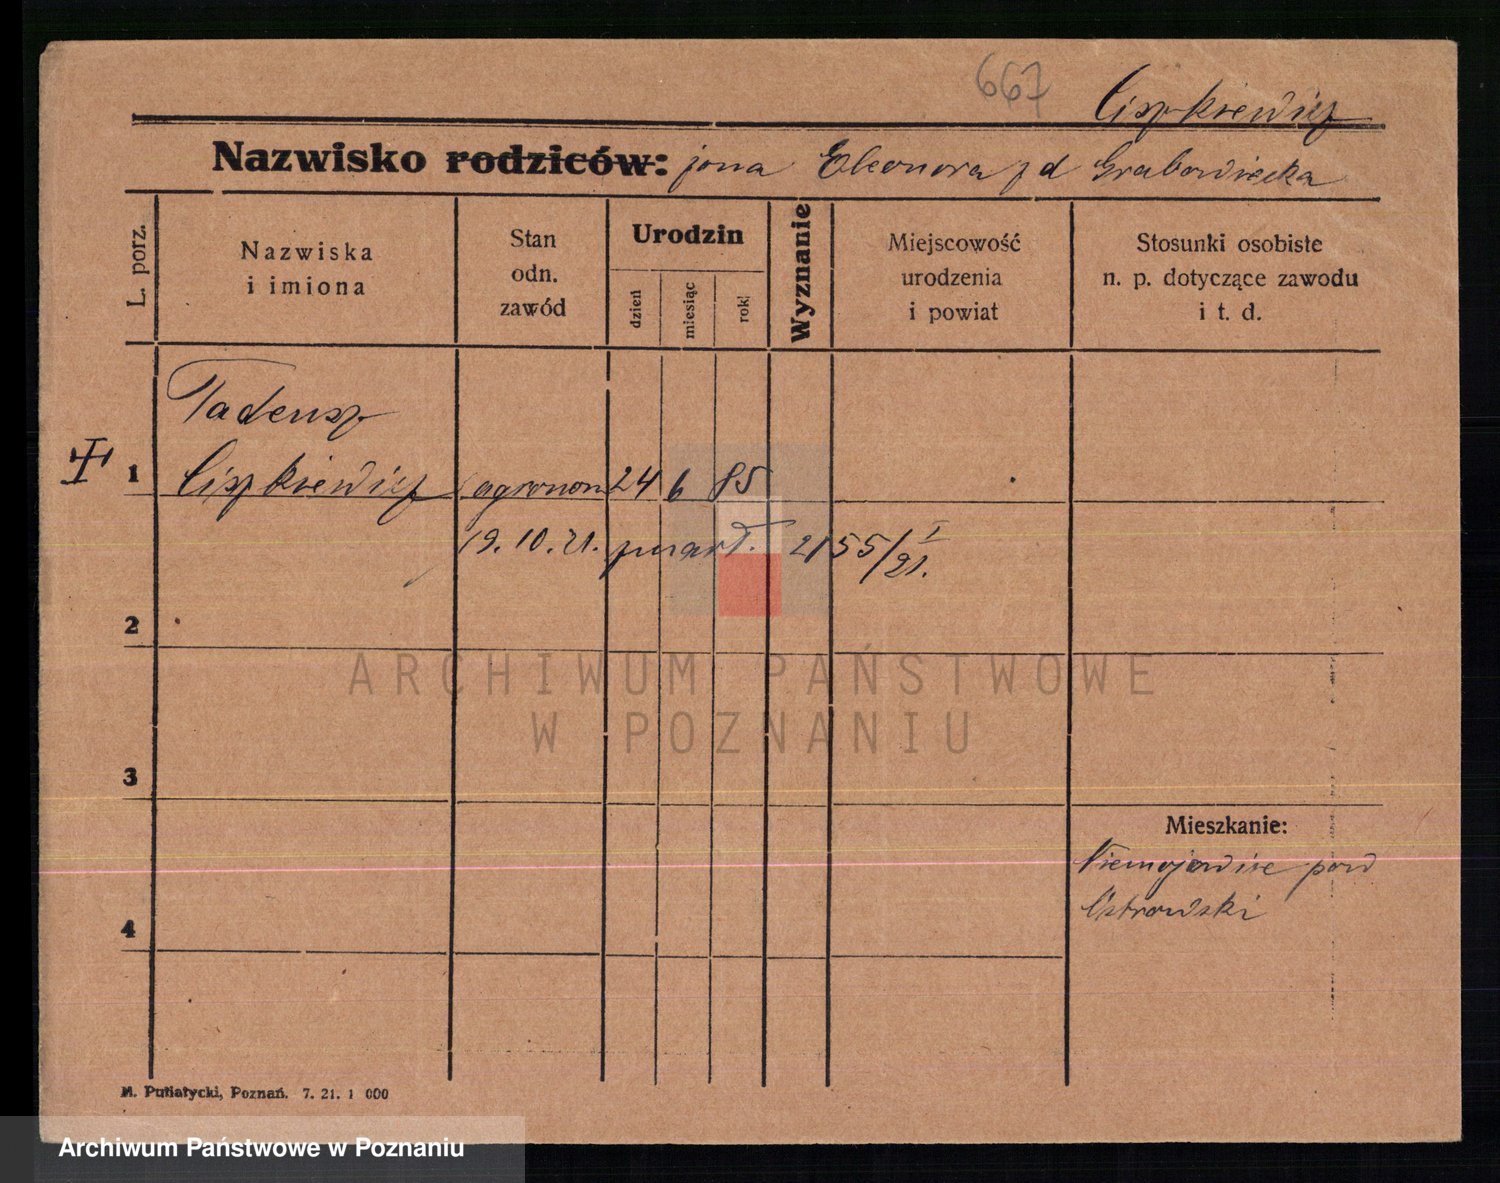 667
Ciszkiewicz
Nazwisko rodziców: żona Eleonora zd Grabowiecka
L. porz.
Nazwiska
i imiona
Stan
odn.
zawód
Urodzin
dzień
miesiąc
rok
Wyznanie
Miejscowość
urodzenia
i powiat
Stosunki osobiste
n. p. dotyczące zawodu
i t. d.
Tadeusz
1 Ciszkiewicz agronom 24 6 85
19. 10. 21. zmarł. 2155/21. I
2
3
Mieszkanie:
Niemojewice pow
Ostrowski
4
M. Putiatycki, Poznań. 7. 21. 1 000
ARCHIWUM PAŃSTWOWE
W POZNANIU
Archiwum Państwowe w Poznaniu